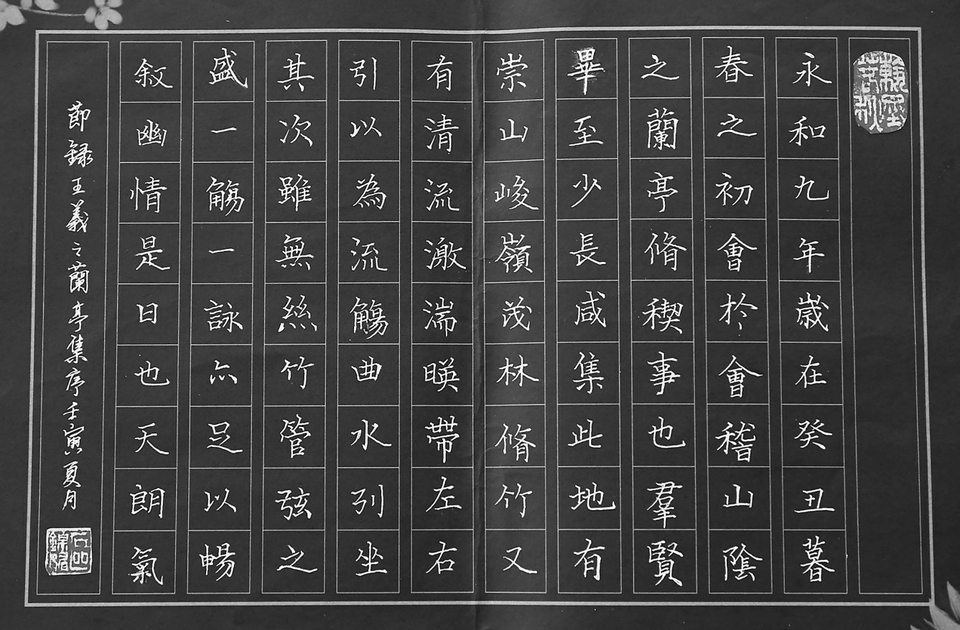 永和九年歲在癸丑暮
春之初會於會稽山陰
之蘭亭脩禊事也羣賢
畢至少長咸集此地有
崇山峻嶺茂林脩竹又
有清流激湍暎帶左右
引以為流觴曲水列坐
其次雖無絲竹管弦之
盛一觴一詠亦足以暢
敘幽情是日也天朗氣
節録王羲之蘭亭集序壬寅夏月